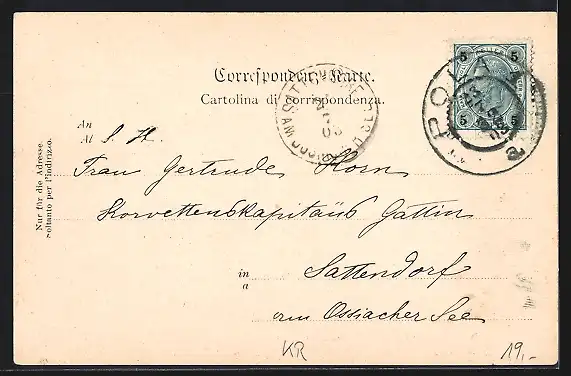 Correspondenz-Karte.
Cartolina di corrispondenza.
An
Al S. H.
Frau Gertrude Horn
Korvettenskapitäns Gattin
in
a Sattendorf
am Ossiacher See
Nur für die Adresse.
Soltanto per l'indirizzo.
5 5
5 5
POLA
KR
19,-